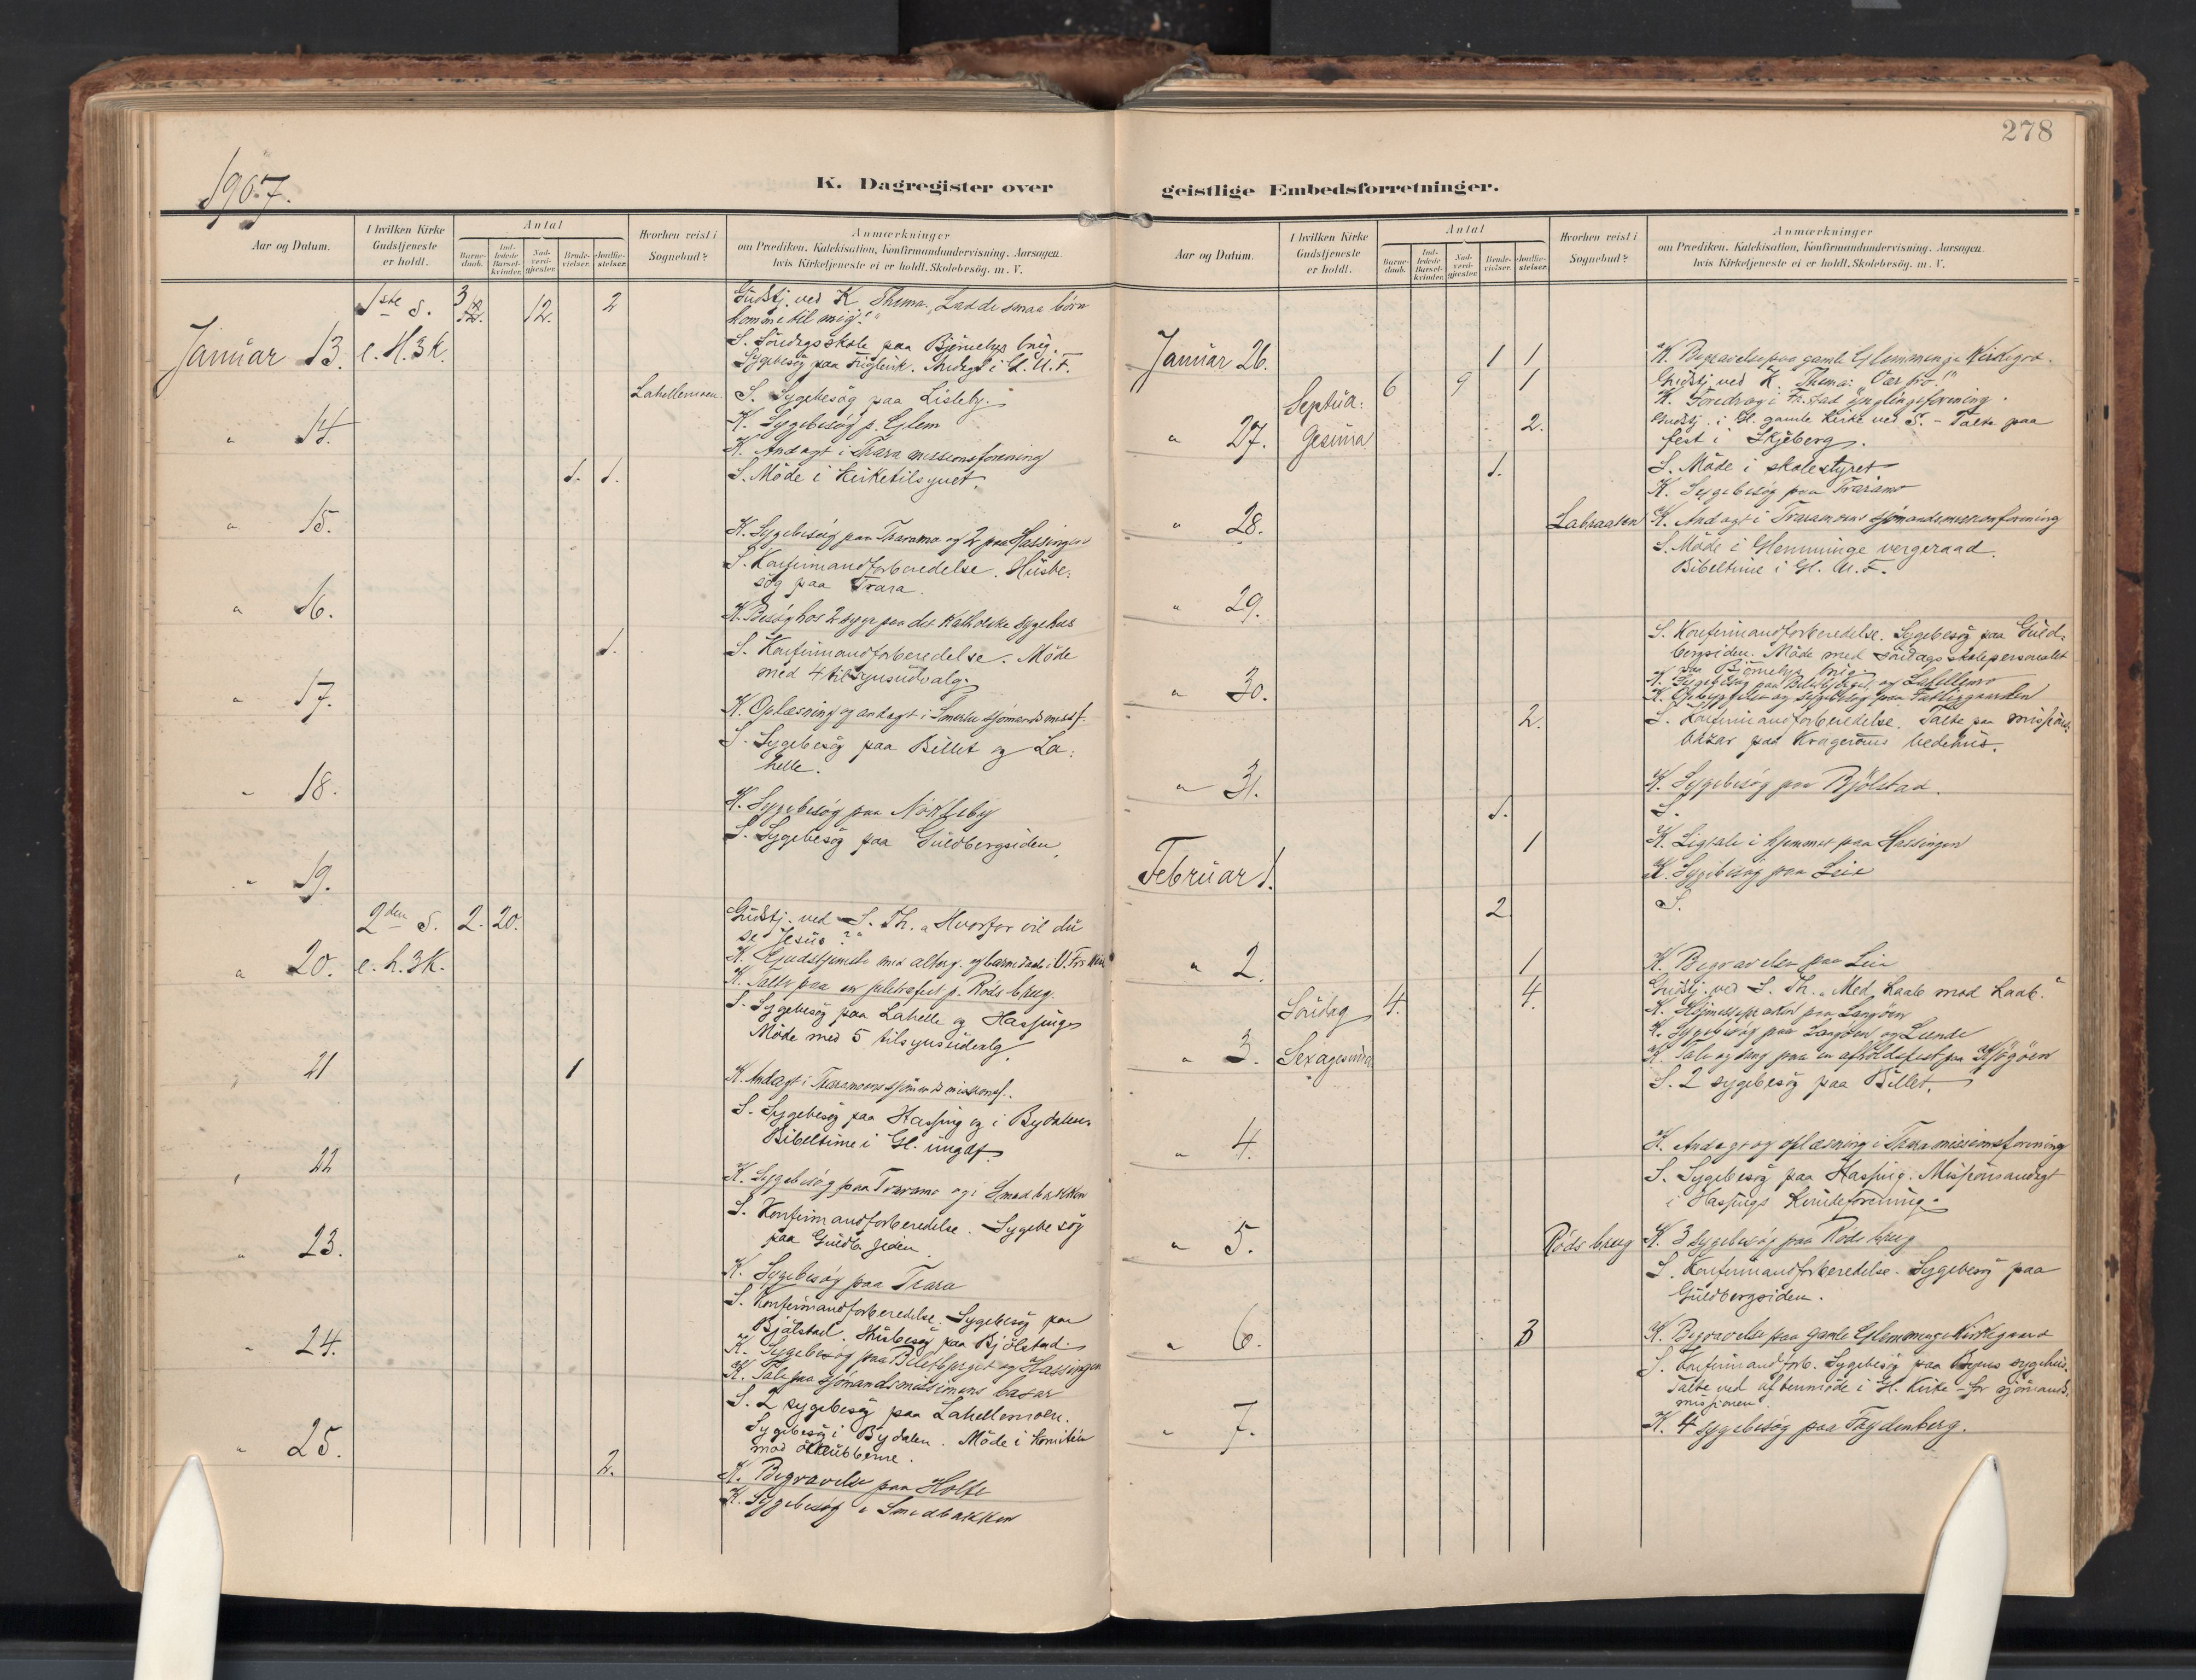 278
1907.
K. Dagregister over
geistlige Embedsforretninger.
Aar og Datum.
I hvilken Kirke
Gudstjeneste
er holdt.
Antal
Barne-
daab.
Ind-
ledede
Barsel-
kvinder.
Nad-
verd-
gjester.
Brude-
vielser.
Jordfæ-
stelser.
Hvorhen reist i
Sognebud?
Anmærkninger
om Prædiken, Katekisation, Konfirmandundervisning. Aarsagen
hvis Kirketjeneste ei er holdt. Skolebesøg. m. V.
1ste S. 3 12. 2 Gudstj. ved K. Thema: "Lad de smaa börn
komme til mig!"
Januar 13. e. H.3K. S. Söndagsskole paa Björnebys brug.
Sygebesög paa Fuglevik. Andagt i Gl. U.F.
Lahellemoen. S. Sygebesög paa Lisleby.
" 14. K. Sygebesög p. Glem
K. Andagt i Trara missionsforening
1. 1. S. Möde i kirketilsynet.
" 15.
K. Sygebesög paa Traramo og 2 paa Hassingen
S. Konfirmandforberedelse. Husbe-
sög paa Trara.
" 16.
K. Besög hos 2 syge paa det katholske sygehus
1. S. Konfirmandforberedelse. Möde
med 4 tilsynsudvalg.
" 17.
K. Oplæsning og andagt i Smertu sjömandsmissf.
S. Sygebesög paa Billet og La-
helle.
" 18.
K. Sygebesög paa Nökleby
S. Sygebesög paa Guldbergsiden.
" 19.
2den S. 2. 20. Gudstj. ved S. Th. "Hvorfor vil du
se Jesus?"
" 20. e. h.3K. K. Gudstjeneste med alterg. og barnedaab i
K. Talte paa en juletræfest p. Röds brug.
S. Sygebesög paa Lahelle og Hassing
Möde med 5 tilsynsudvalg.
" 21 1
K. Andagt i Traramoens sjömandsmissionsf.
S. Sygebesög paa Hassing og i Bydalen.
Bibeltime i Gl. ungdf.
" 22
K. Sygebesög paa Traramo og i Smedbakken
S. Konfirmandforberedelse. Sygebesög
paa Guldb. siden.
" 23.
K. Sygebesög paa Trara
S. Konfirmandforberedelse. Sygebesög paa
Bjölstad. Husbesög paa Bjölstad.
" 24. K. Sygebesög paa Biletberget og Hassingen
K. Tale paa sjömandsmissionens basar
S. 2 sygebesög paa Lahellemoen.
Sygebesög i Bydalen. Möde i komitéen
" 25. mod ölklubberne.
2. K. Begravelse paa Holte
K. Sygebesög i Smedbakken
Aar og Datum.
I hvilken Kirke
Gudstjeneste
er holdt.
Antal
Barne-
daab.
Ind-
ledede
Barsel-
kvinder.
Nad-
verd-
gjester.
Brude-
vielser.
Jordfæ-
stelser.
Hvorhen reist i
Sognebud?
Anmærkninger
om Prædiken, Katekisation, Konfirmandundervisning. Aarsagen
hvis Kirketjeneste ei er holdt. Skolebesøg. m. V.
Januar 26. 1 1 K. Begravelse paa gamle Glemminge Kirkegrd.
6 9 1 Gudstj. ved K. Thema: "Vær tro!"
Septua- K. Foredrag i Fr.stad Ynglingeforening.
" 27. gesima 2. Gudstj. i Gl. gamle kirke ved S. - Talte paa
fest i Skjeberg.
1. S. Möde i skolestyret
K. Sygebesög paa Traramo
" 28. Labraaten K. Andagt i Traramoens sjömandsmissionforening
S. Möde i Glemminge vergeraad.
Bibeltime i Gl. U.F.
" 29.
S. Konfirmandforberedelse. Sygebesög paa Guld-
bergsiden. Möde med söndagsskolepersonalet
paa Björnebys brug.
" 30. K. Sygebesög paa Biletberget og Lahellemo
K. og sygebesög paa Fattiggaarden
2. S. Konfirmandforberedelse. Talte paa missions-
bazar paa Krageröens bedehus.
" 31. K. Sygebesög paa Bjölstad.
1. S.
1 K. Ligtale i hjemmet paa Hassingen
Februar 1. K. Sygebesög paa Leie
2 S.
" 2. 1 K. Begravelse paa Leie
Söndag 4. 4. Gudstj. ved S. Th. "Med Haab mod Haab."
K. paa Langöen
K. Sygebesög paa Langöen og Lunde
" 3. Sexagesima K. Tale og sang paa en afholdsfest paa Kjögöen
S. 2 sygebesög paa Billet.
" 4. K. Andagt og oplæsning i Trara missionsforening
S. Sygebesög paa Hassing. Missionsandagt
i Hassings Kvindeforening.
" 5. Röds brug K. 3 sygebesög paa Röds brug
S. Konfirmandforberedelse. Sygebesög paa
Guldbergsiden.
" 6. 3 K. Begravelse paa gamle Glemminge Kirkegaard
S. Konfirmandforb. Sygebesög paa Byens sygehus.
Talte ved aftenmöde i Gl. Kirke for sjömands-
missionen.
" 7. K. 4 sygebesög paa Trydenberg.